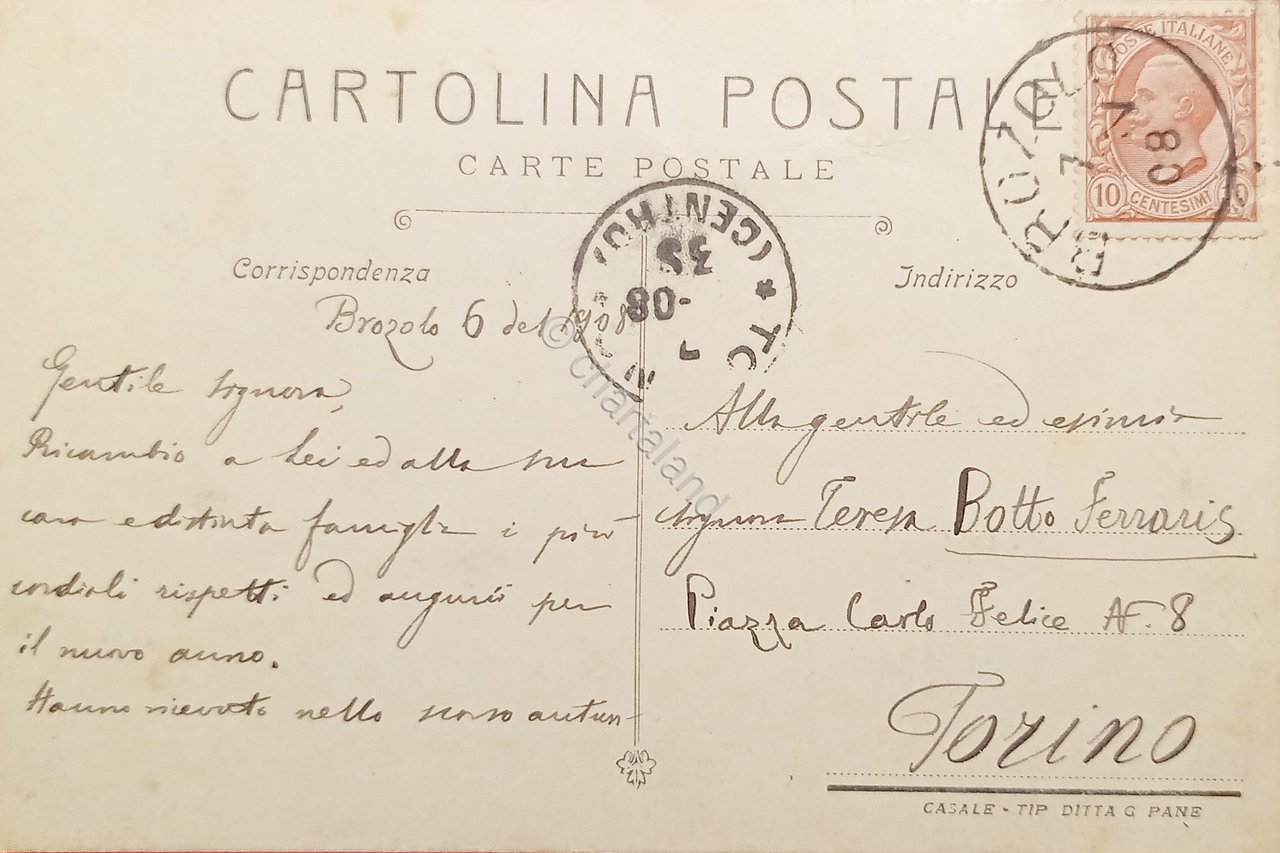 CARTOLINA POSTALE
CARTE POSTALE
POSTE ITALIANE
10 CENTESIMI 10
BROZOLO
08
(CENTRO)
3S
-08
* TO
Corrispondenza
Brozolo 6 del 1908
Gentile signora,
Ricambio a Lei ed alla sua
cara e distinta famiglia i più
cordiali rispetti ed augurii per
il nuovo anno.
Hanno ricevuto nello scorso autun-
Indirizzo
Alla gentile ed esimia
signora Teresa Botto Ferraris
Piazza Carlo Felice N. 8
Torino
CASALE - TIP DITTA G PANE
© chartaland